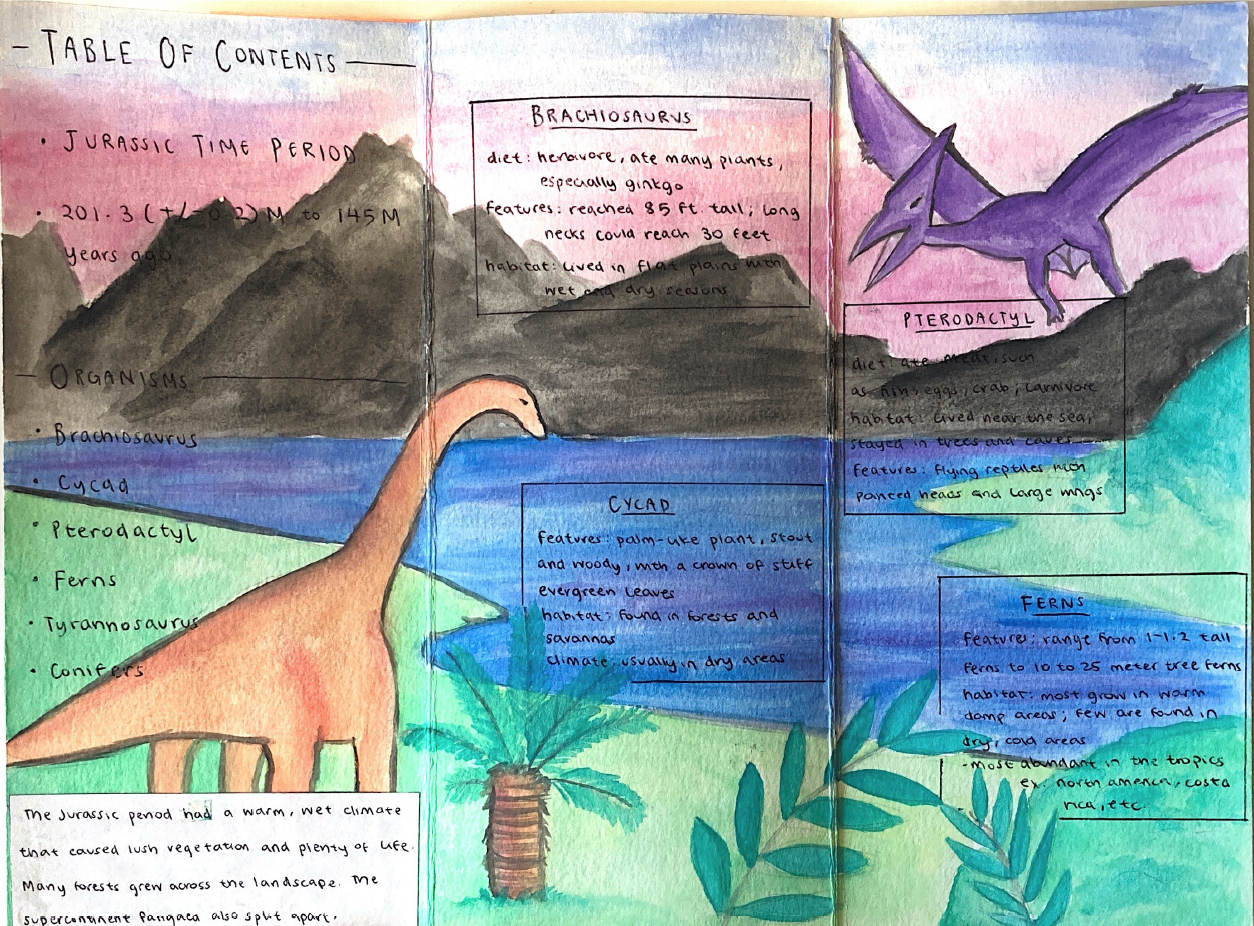 - TABLE OF CONTENTS -
• JURASSIC TIME PERIOD
• 201.3 (+/-0.2) M to 145 M
years ago
- ORGANISMS -
• Brachiosaurus
• Cycad
• Pterodactyl
• Ferns
• Tyrannosaurus
• Conifers
The Jurassic period had a warm, wet climate
that caused lush vegetation and plenty of life.
Many forests grew across the landscape. The
supercontinent Pangaea also split apart.
BRACHIOSAURUS
diet: herbivore, ate many plants,
especially ginkgo
features: reached 85 ft. tall; long
necks could reach 30 feet
habitat: lived in flat plains with
wet and dry seasons
CYCAD
features: palm-like plant, stout
and woody, with a crown of stiff
evergreen leaves
habitat: found in forests and
savannas
climate: usually in dry areas
PTERODACTYL
diet: ate meat, such
as fish, eggs, crab; carnivore
habitat: lived near the sea,
stayed in trees and caves
features: flying reptiles with
pointed heads and large wings
FERNS
features: range from 1-1.2 tall
ferns to 10 to 25 meter tree ferns
habitat: most grow in warm
damp areas; few are found in
dry, cold areas
-most abundant in the tropics
ex. north america, costa
rica, etc.